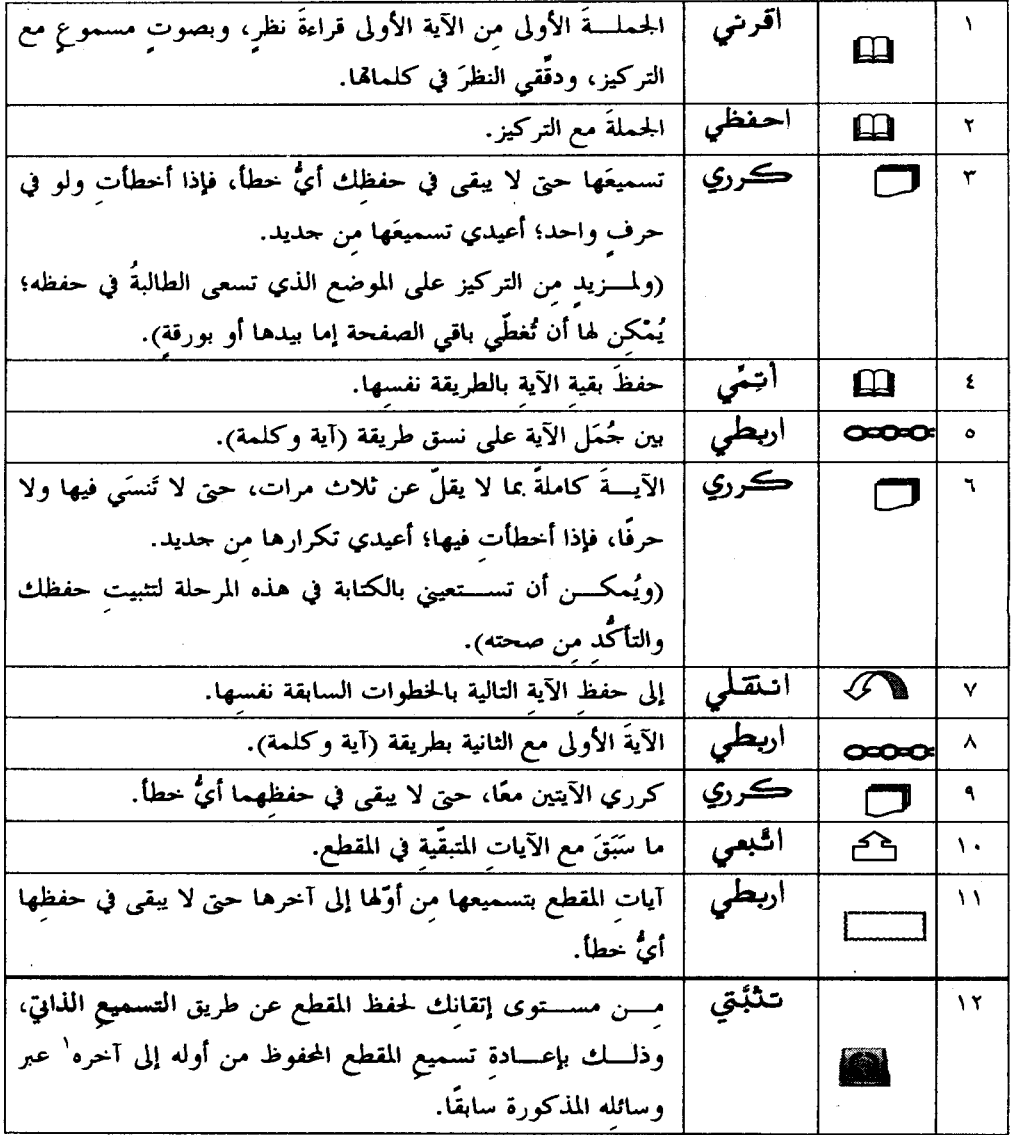 ١ اقرئي الجملـــةَ الأولى مِن الآية الأولى قراءةَ نظرٍ، وبصوتٍ مسموعٍ مع
التركيز، ودقِّقي النظرَ في كلماتها.
٢ احفظي الجملةَ مع التركيز.
٣ كرري تسميعَها حتى لا يبقى في حفظِك أيُّ خطأ، فإذا أخطأتِ ولو في
حرفٍ واحد؛ أعيدي تسميعَها مِن جديد.
(ولمـــزيدٍ مِن التركيز على الموضع الذي تسعى الطالبةُ في حفظه؛
يُمْكِن لها أن تُغطّي باقي الصفحة إما بيدها أو بورقةٍ).
٤ أتِمِّي حفظَ بقيةِ الآيةِ بالطريقة نفسِها.
٥ اربطي بين جُمَل الآية على نسق طريقة (آية وكلمة).
٦ كرري الآيـــةَ كاملةً بما لا يقلّ عن ثلاث مرات، حتى لا تَنسَي فيها ولا
حرفًا، فإذا أخطأتِ فيها؛ أعيدي تكرارها مِن جديد.
(ويُمكـــن أن تســـتعيني بالكتابة في هذه المرحلة لتثبيتِ حفظك
والتأكُّدِ مِن صحته).
٧ انتقلي إلى حفظِ الآيةِ التالية بالخطوات السابقة نفسِها.
٨ اربطي الآيةَ الأولى مع الثانية بطريقة (آية وكلمة).
٩ كرري كرري الآيتين معًا، حتى لا يبقى في حفظِهما أيُّ خطأ.
١٠ اتَّبعي ما سَبَقَ مع الآياتِ المتبقّيةِ في المقطع.
١١ اربطي آياتِ المقطع بتسميعها مِن أوّلها إلى آخرها حتى لا يبقى في حفظِها
أيُّ خطأ.
١٢ تثبَّتي مِـــن مســـتوى إتقانِك لحفظ المقطع عن طريق التسميعِ الذاتيّ،
وذلـــك بإعـــادةِ تسميعِ المقطع المحفوظ من أوله إلى آخره١ عبر
وسائلِه المذكورة سابقًا.